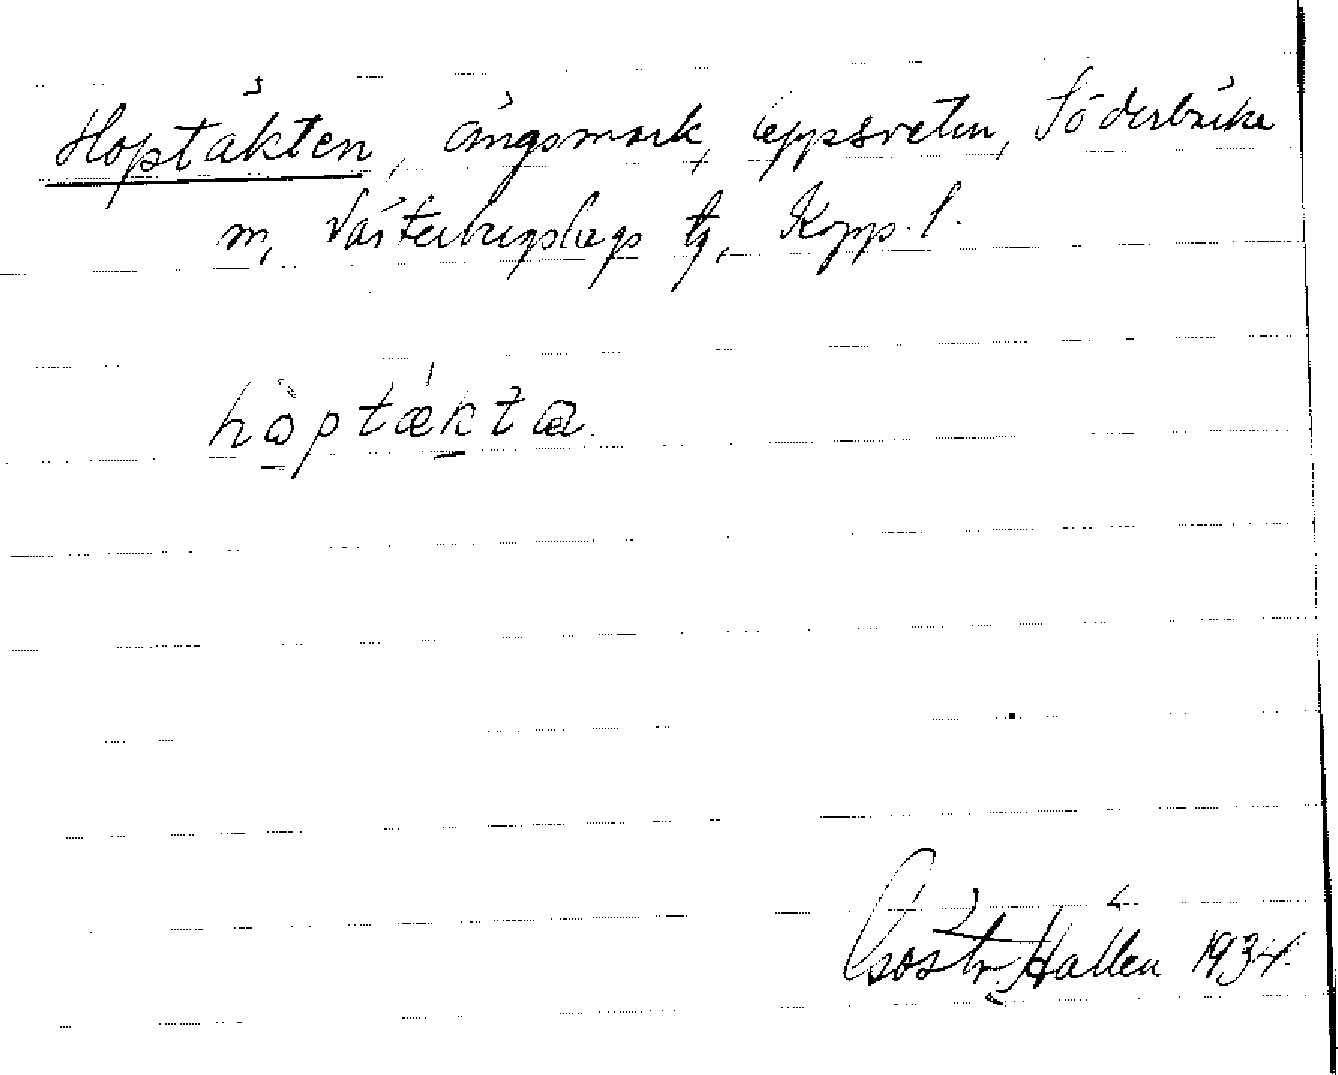 Hoptäkten, ängsmark, Uppsveten, Söderbärke
sn, Västerbergslags tg, Kopp. l.
hòptækta.
Hallén 1934.